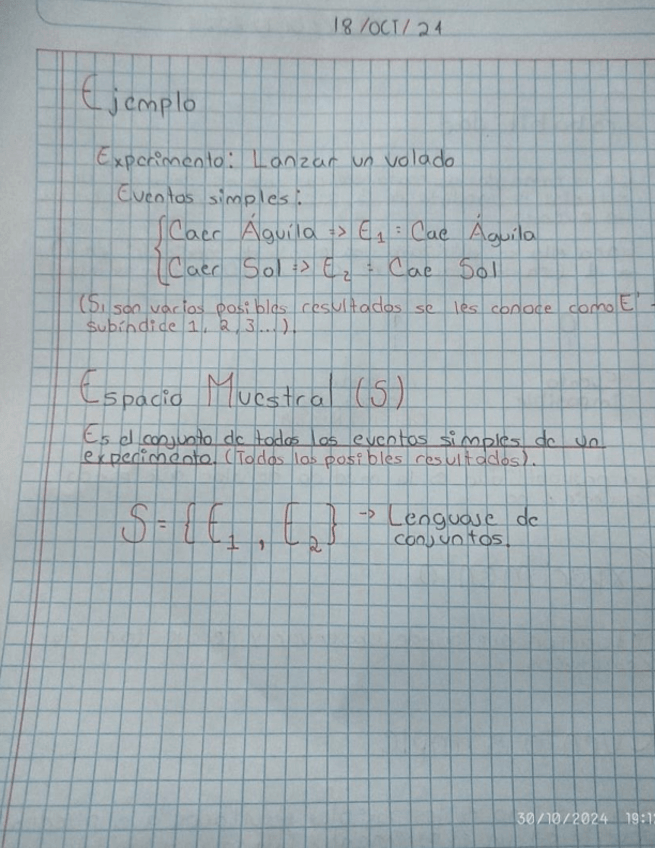 18/OCT/24
Ejemplo
Experimento: Lanzar un volado
Eventos simples:
Caer Águila => E1 : Cae Águila
Caer Sol => E2 : Cae Sol
(Si son varios posibles resultados se les conoce como E
subíndide 1, 2, 3...).
Espacio Muestral (S)
Es el conjunto de todos los eventos simples de un
experimento. (Todos los posibles resultados).
S = {E1, E2} → Lenguaje de
conjuntos.
30/10/2024 19:1